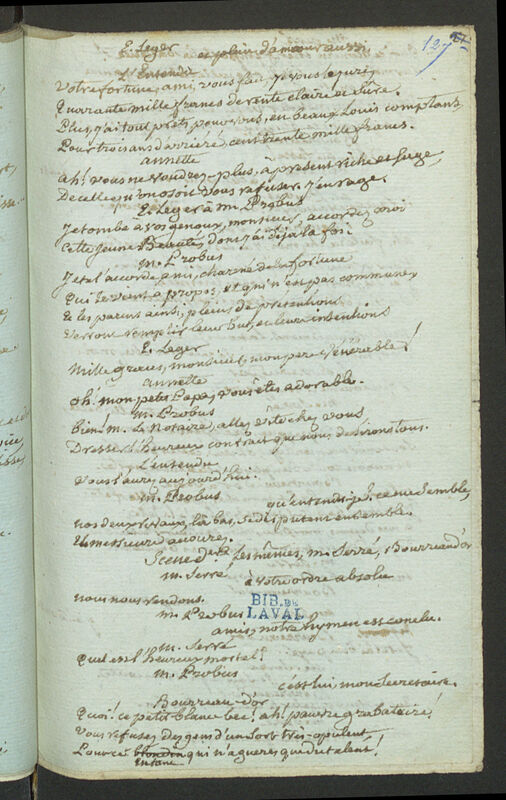 127
E. Leger
et plein d'amour aussi,
L'Entendu
Votre fortune, ami, vous fait, je vous le jure,
Quarante mille francs de rente claire et sûre.
Plus, j'ai tout prêts, pour vous, en beaux Louis comptans,
Pour trois ans d'arriéré, cent trente mille francs.
annette
ah! vous ne voudrez plus, a présent riche et
De celle qu'on osoit vous refuser, j'enrage.
E. Leger à M. Probus
Je tombe a vos genoux, monsieur, accordez moi
Cette jeune Beauté, dont j'ai déja la foi.
M. Probus
Je te l'accorde ami, charmé de la fortune
Qui te vient a propos, et qui n'est pas commune,
Et les parens ainsi, pleins de prétentions
Verront remplir leur but, et leurs intentions
E. Leger
Mille graces, monsieur, mon pere vénérable!
annette
oh! mon petit Papa, vous êtes adorable.
M. Probus
bien! M. Le Notaire, allez vite chez vous
Dresser l'heureux contrat que nous desirons tous.
L'entendu
Vous l'aurez aujourd'hui.
M. Probus
qu'entends-je? ce me semble,
nos deux rivaux, là bas, se disputent ensemble.
Scene
Les mêmes, M. Serré, Bourreau d'or
M. Serré
à votre ordre absolu
nous nous rendons.
M. Probus
BIB. DE
LAVAL
amis, notre hymen est conclu.
M. Serré
quel est l'heureux mortel?
M. Probus
c'est lui, mon Secretaire.
Bourreau d'or
Quoi! ce petit blanc bec! ah! pauvre grabataire!
Vous refusez des gens d'un sort très-opulent
Pour ce blondin qui n'a gueres que du talent!